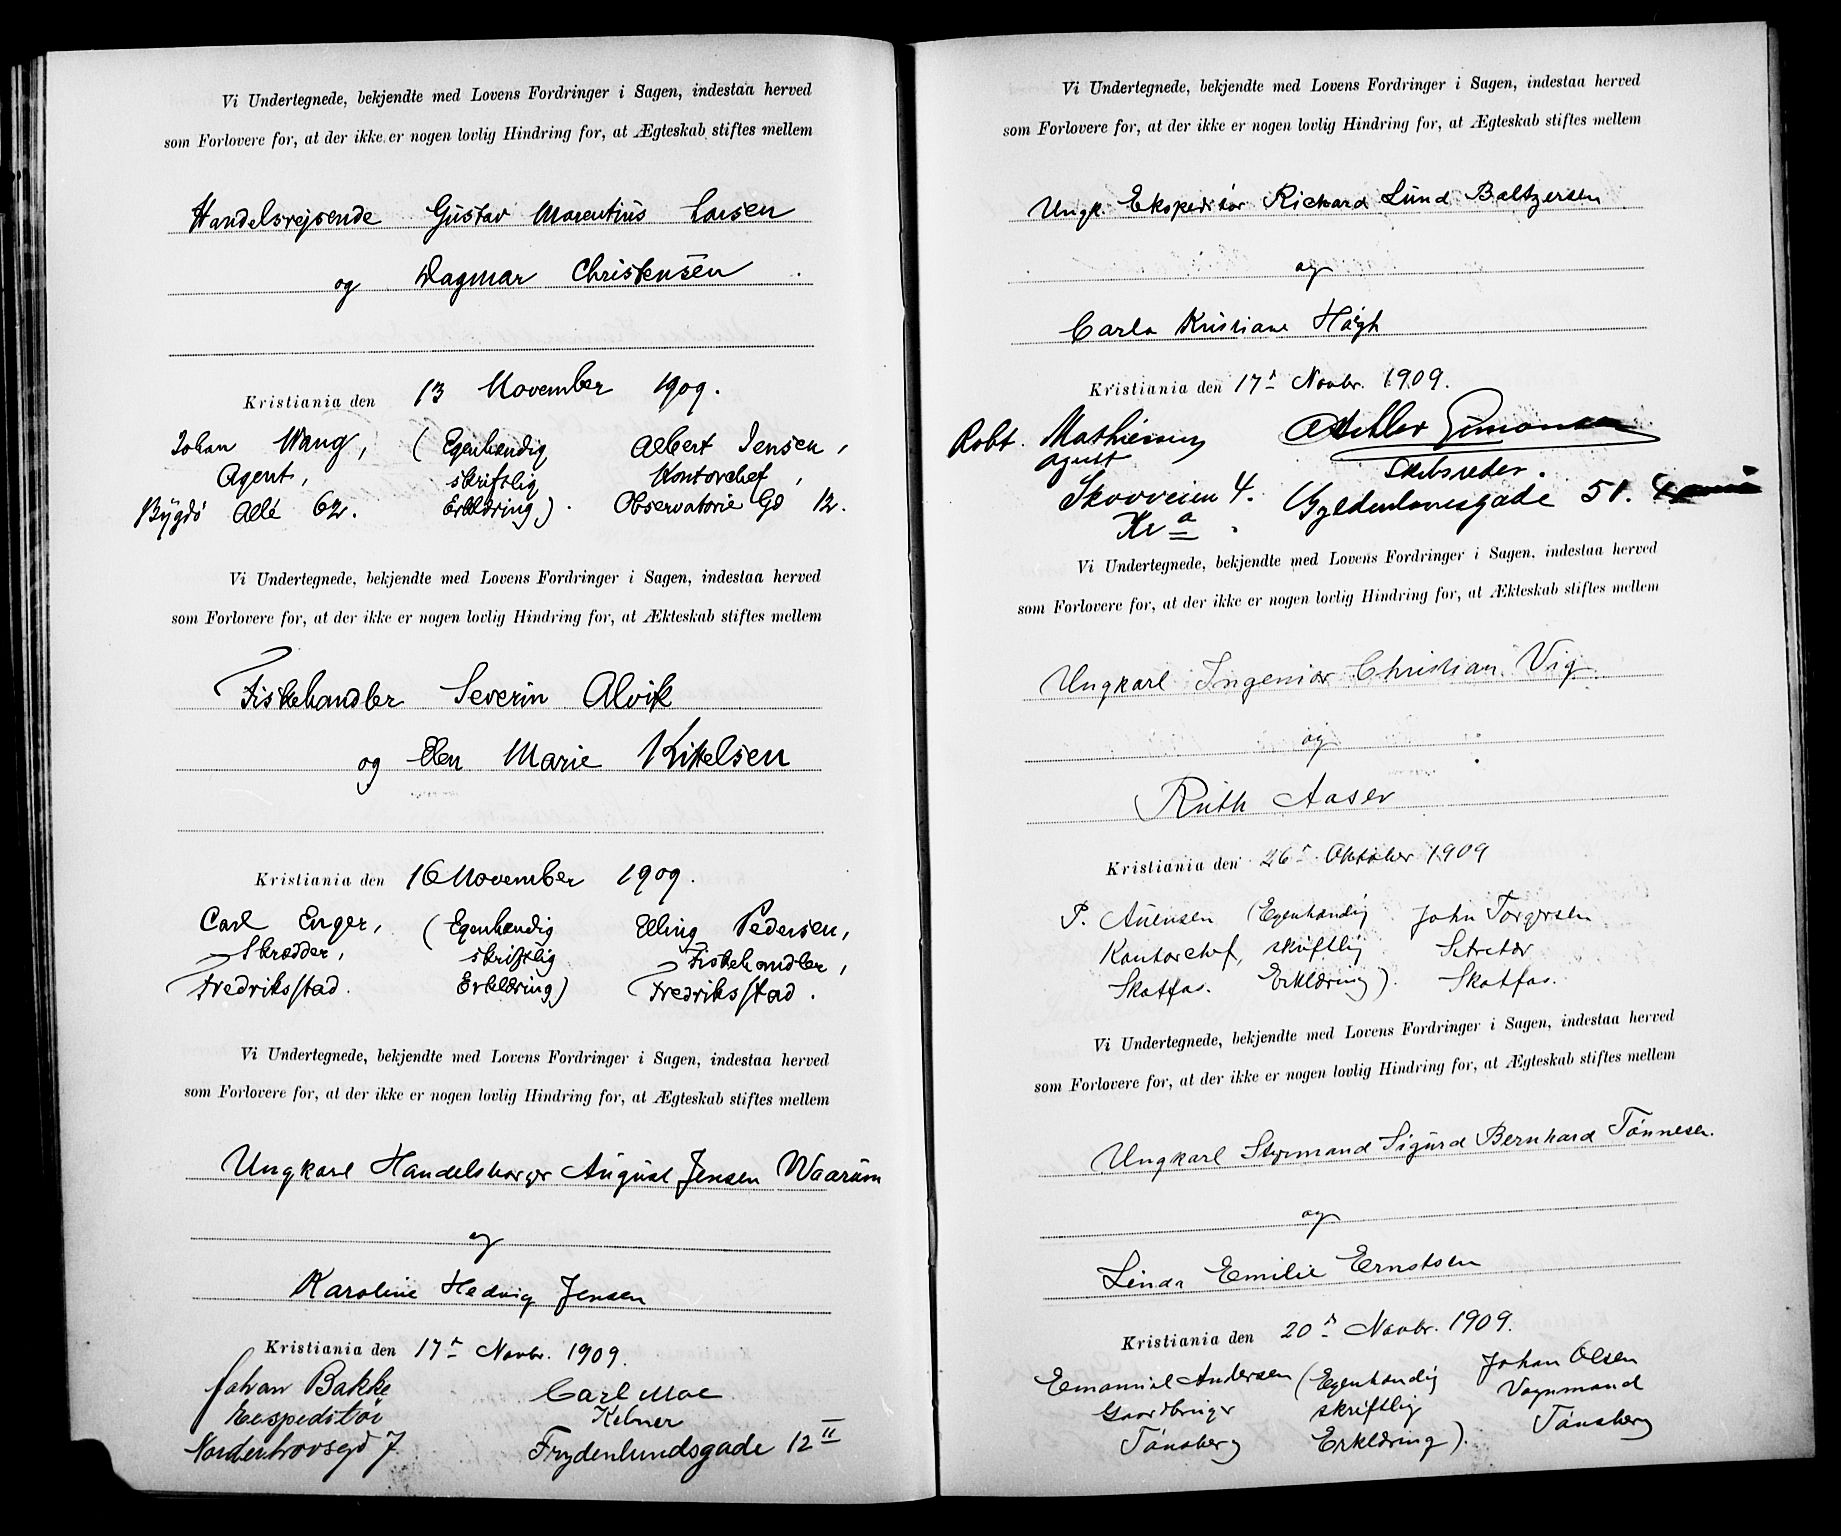 Vi Undertegnede, bekjendte med Lovens Fordringer i Sagen, indestaa herved
som Forlovere for, at der ikke er nogen lovlig Hindring for, at Ægteskab stiftes mellem
Handelsrejsende Gustav Marentius Larsen
og Dagmar Christensen
Kristiania den 13 November 1909.
Johan Wang, (Egenhændig Albert Jensen,
Agent, skriftlig Kontorchef,
Bygdö Allé 62. Erklæring). Observatorie Gd 12.
Vi Undertegnede, bekjendte med Lovens Fordringer i Sagen, indestaa herved
som Forlovere for, at der ikke er nogen lovlig Hindring for, at Ækteskab stiftes mellem
Fiskehandler Severin Alvik
og Elen Marie Kittelsen
Kristiania den 16 November 1909.
Carl Enger, (Egenhændig Elling Pedersen,
Skrædder, skriftlig Fiskehandler,
Fredriksstad. Erklæring) Fredriksstad.
Vi Undertegnede, bekjendte med Lovens Fordringer i Sagen, indestaa herved
som Forlovere for, at der ikke er nogen lovlig Hindring for, at Ægteskab stiftes mellem
Ungkarl Handelsborger August Jensen Waarum
og
Karoline Hedvig Jensen
Kristiania den 17de Novbr. 1909.
Johan Bakke Carl Moe
Expeditör Kelner
Norderhovsgd 7 Frydenlundsgade 12 II
Vi Undertegnede, bekjendte med Lovens Fordringer i Sagen, indestaa herved
som Forlovere for, at der ikke er nogen lovlig Hindring for, at Ægteskab stiftes mellem
Ungk. Ekspeditör Richard Lund Baltzersen
og
Carla Kristiane Høgh
Kristiania den 17de Novbr. 1909.
Robt. Mathiesen Simonsen
agent Skibsreder.
Skovveien 4. Gyldenlovesgade 51.
Kra
Vi Undertegnede, bekjendte med Lovens Fordringer i Sagen, indestaa herved
som Forlovere for, at der ikke er nogen lovlig Hindring for, at Ækteskab stiftes mellem
Ungkarl Ingeniør Christian Vig.
og
Ruth Aaser
Kristiania den 26de Oktober 1909
P. Auensen (Egenhændig John Torgersen
Kontorchef, skriftlig Sekretær
Skotfos. Erklæring). Skotfos.
Vi Undertegnede, bekjendte med Lovens Fordringer i Sagen, indestaa herved
som Forlovere for, at der ikke er nogen lovlig Hindring for, at Ægteskab stiftes mellem
Ungkarl Styrmand Sigurd Bernhard Tönnesen.
og
Linda Emilie Ernstsen
Kristiania den 20de Novbr. 1909.
Emanuel Andersen (Egenhændig Johan Olsen
Gaardbruger skriftlig Vognmand
Tönsberg Erklæring). Tönsberg